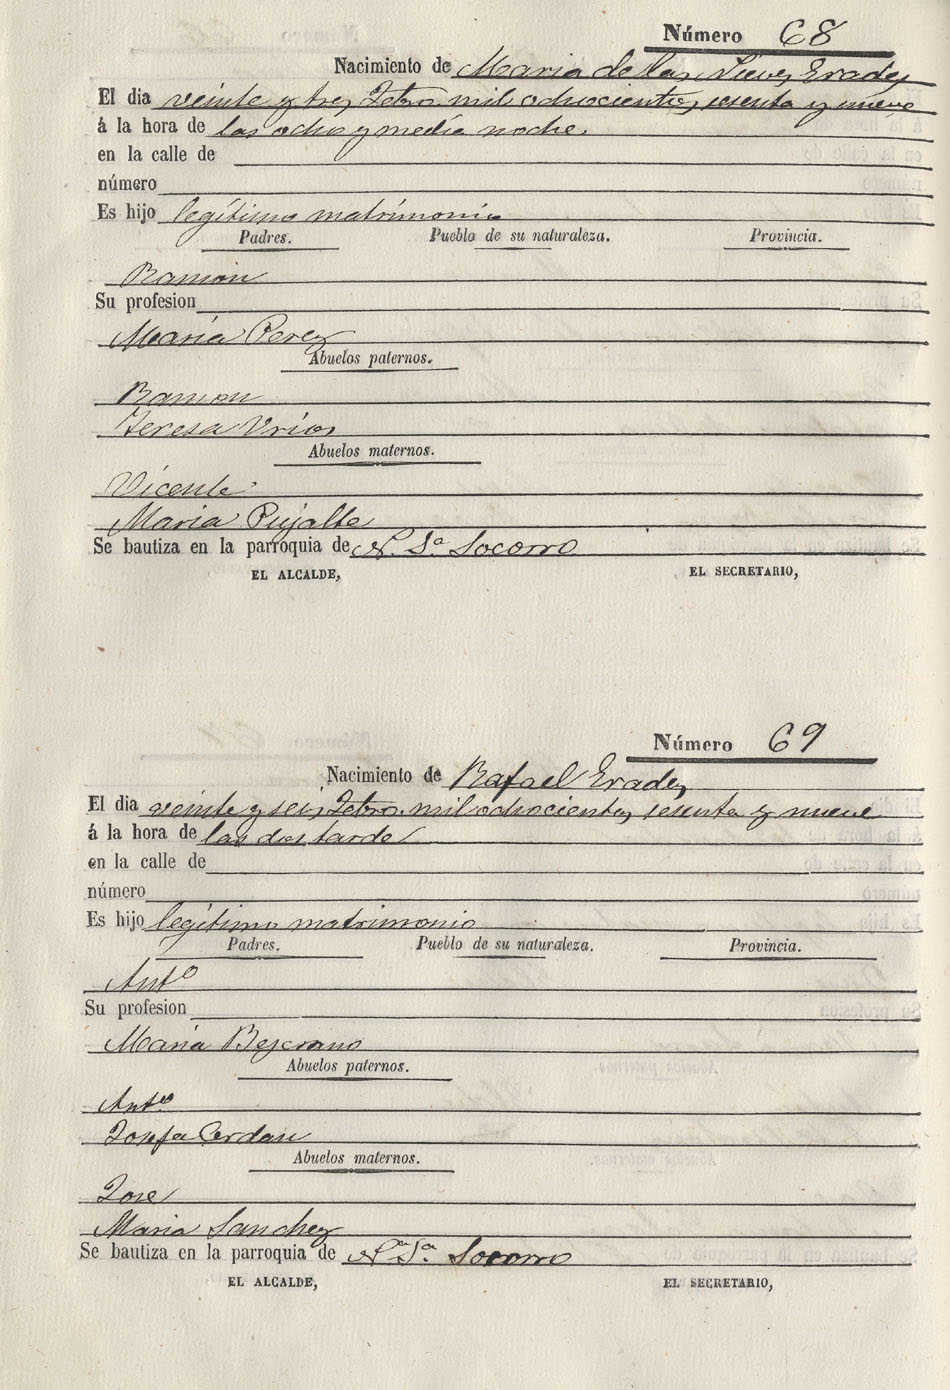 Número 68
Nacimiento de Maria de las Nieves Erades
El dia veinte y tres Febro. mil ochocientos sesenta y nueve
á la hora de las ocho y media noche.
en la calle de
número
Es hijo legítimo matrimonio
Padres. Pueblo de su naturaleza. Provincia.
Ramon
Su profesion
María Perez
Abuelos paternos.
Ramon
Teresa Vrios
Abuelos maternos.
Vicente
Maria Pujalte
Se bautiza en la parroquia de N. Sª Socorro
EL ALCALDE, EL SECRETARIO,
Número 69
Nacimiento de Rafael Erades
El dia veinte y seis Febro. mil ochocientos sesenta y nueve
á la hora de las dos tarde
en la calle de
número
Es hijo legítimo matrimonio
Padres. Pueblo de su naturaleza. Provincia.
Antº
Su profesion
Maria Bejerano
Abuelos paternos.
Antº
Josefa Cerdan
Abuelos maternos.
Jose
Maria Sanchez
Se bautiza en la parroquia de Nª Sª Socorro
EL ALCALDE, EL SECRETARIO,